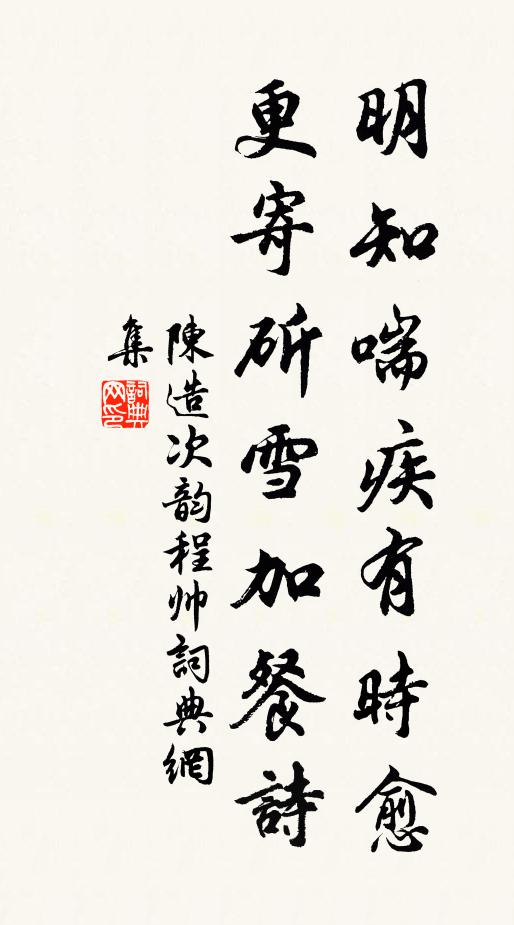 明知喘疾有時愈
更寄斫雪加餐詩
陳造次韵程帅詞典網
集
詞典网印